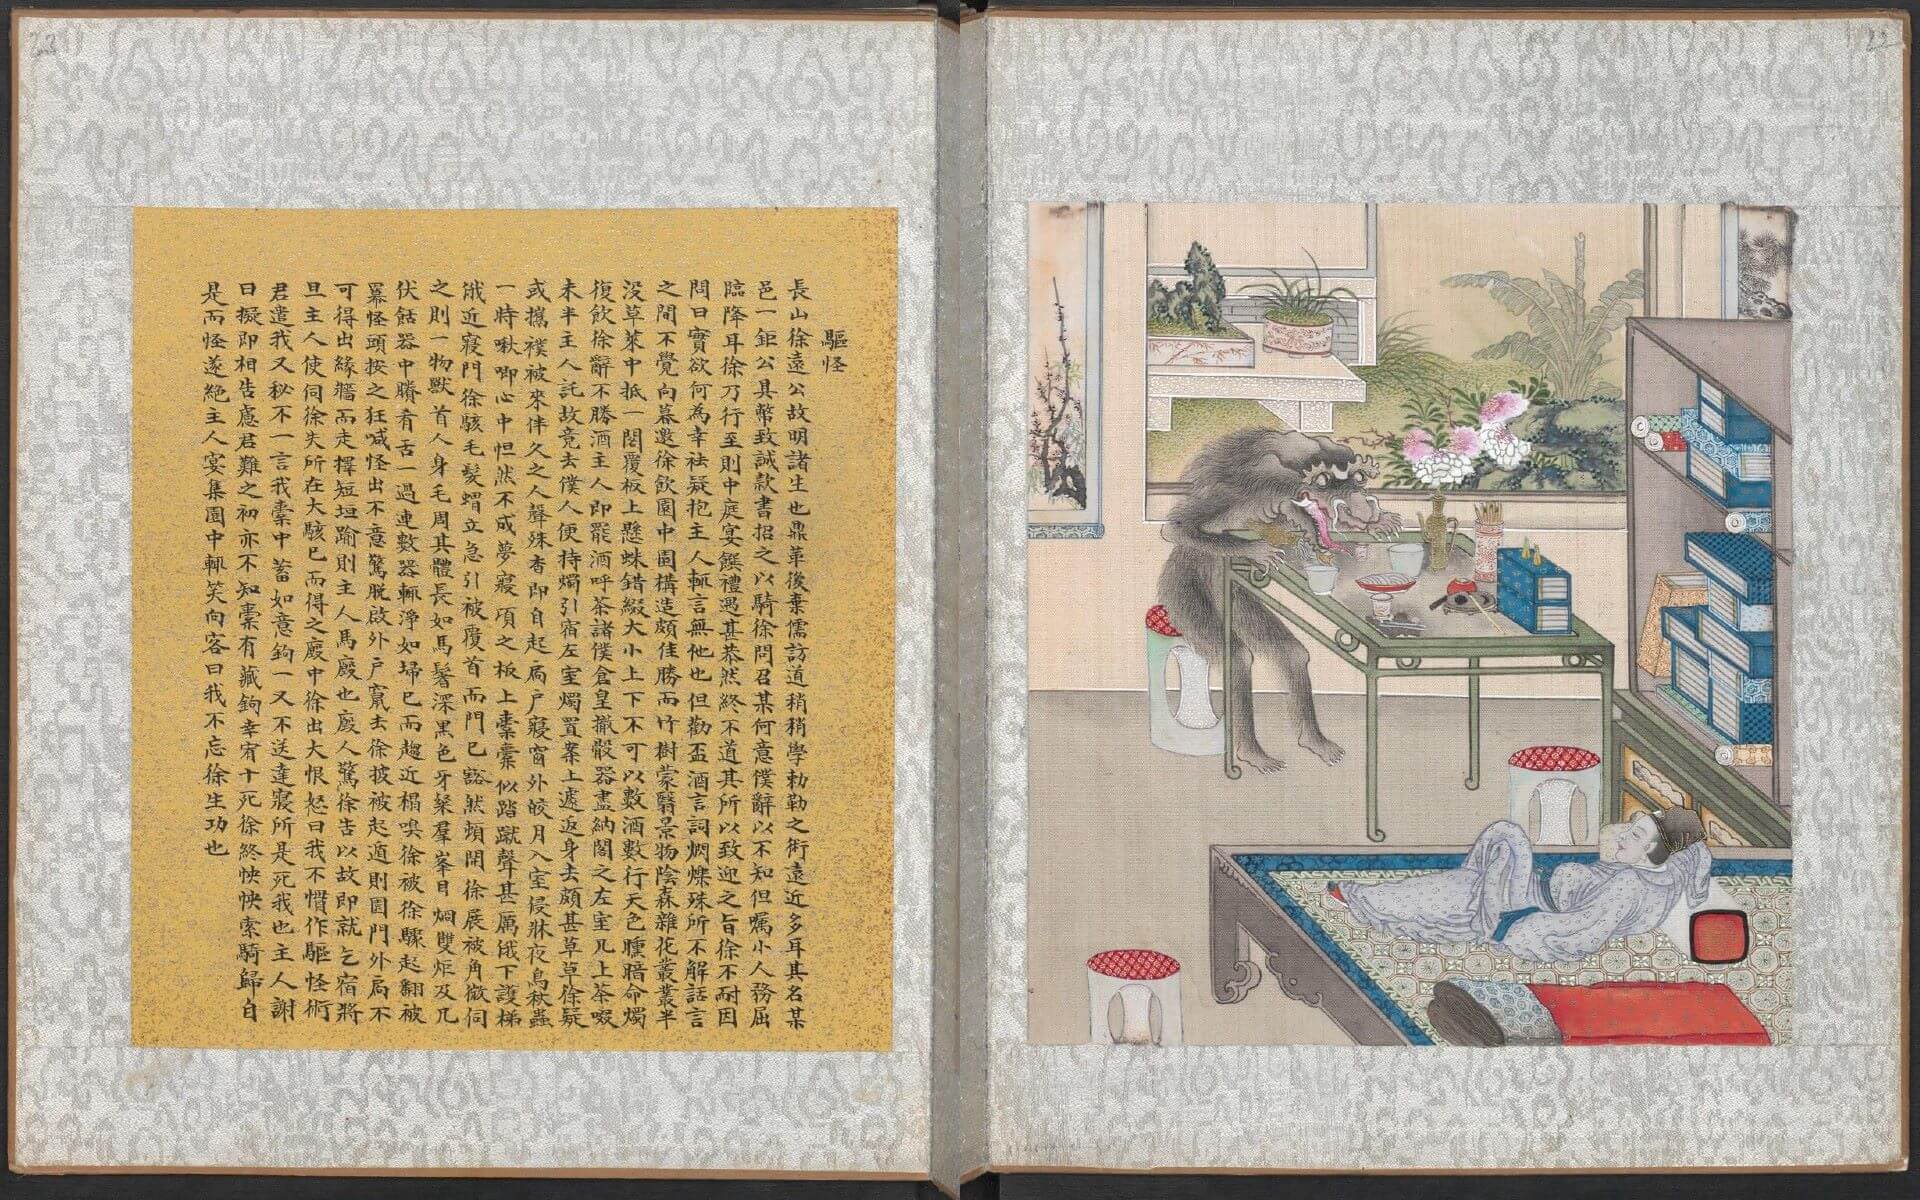 22
23
驅怪
長山徐遠公故明諸生也鼎革後棄儒訪道稍稍學勅勒之術遠近多耳其名某
邑一鉅公具幣致誠款書招之以騎徐問召某何意僕辭以不知但囑小人務屈
臨降耳徐乃行至則中庭宴饌禮遇甚恭然終不道其所以致迎之旨徐不耐因
問曰實欲何為幸祛疑抱主人輒言無他也但勸盃酒言詞爓爍殊所不解話言
之間不覺向暮邀徐飲園中園構造頗佳勝而竹樹蒙翳景物陰森雜花叢叢半
没草萊中抵一閣覆板上懸蛛錯綴大小上下不可以數酒數行天色曛暗命燭
復飲徐辭不勝酒主人即罷酒呼茶諸僕倉皇撤殽器盡納閣之左室几上茶啜
未半主人託故竟去僕人便持燭引宿左室燭置案上遽返身去頗甚草草徐疑
或攜襆被來伴久之人聲殊杳即自起扃戶寢窗外皎月入室侵牀夜鳥秋蟲
一時啾唧心中怛然不成夢寢頃之板上橐橐似踏蹴聲甚厲俄下護梯
俄近寢門徐駭毛髮蝟立急引被覆首而門已豁然頓開徐展被角微伺
之則一物獸首人身毛周其體長如馬鬐深黑色牙粲羣峯目炯雙炬及几
伏餂器中賸肴舌一過連數器輒淨如埽已而趨近榻嗅徐被徐驟起翻被
冪怪頭按之狂喊怪出不意驚脱啟外戶竄去徐披被起遁則園門外扃不
可得出緣牆而走擇短垣踰則主人馬廄也廄人驚徐告以故即就乞宿將
旦主人使伺徐失所在大駭已而得之廄中徐出大恨怒曰我不慣作驅怪術
君遣我又秘不一言我橐中蓄如意鉤一又不送達寢所是死我也主人謝
曰擬即相告慮君難之初亦不知橐有藏鉤幸宥十死徐終怏怏索騎歸自
是而怪遂絶主人宴集園中輒笑向客曰我不忘徐生功也